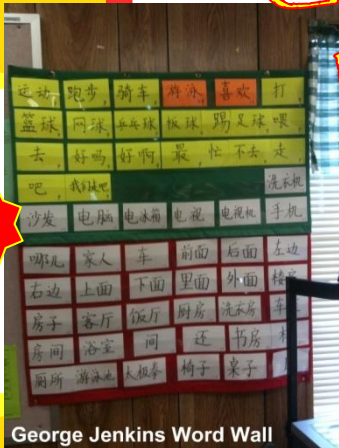 运动 跑步 骑车 游泳 喜欢 打
篮球 网球 乒乓球 板球 踢足球 喂
去 好吗 好啊 最 忙 不去 走
吧 我们走吧 洗衣机
沙发 电脑 电冰箱 电视 电视机 手机
哪儿 家人 车 前面 后面 左边
右边 上面 下面 里面 外面 楼房
房子 客厅 饭厅 厨房 洗衣房 车
房间 浴室 间 还 书房
厕所 游泳池 太极拳 椅子 桌子
George Jenkins Word Wall